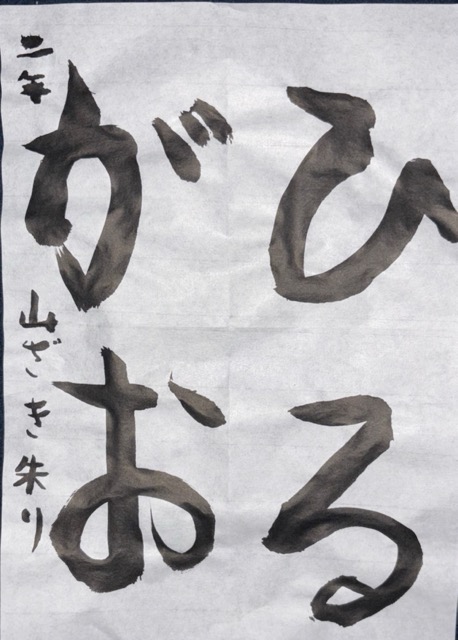 ひる
がお
二年 山ざき朱り